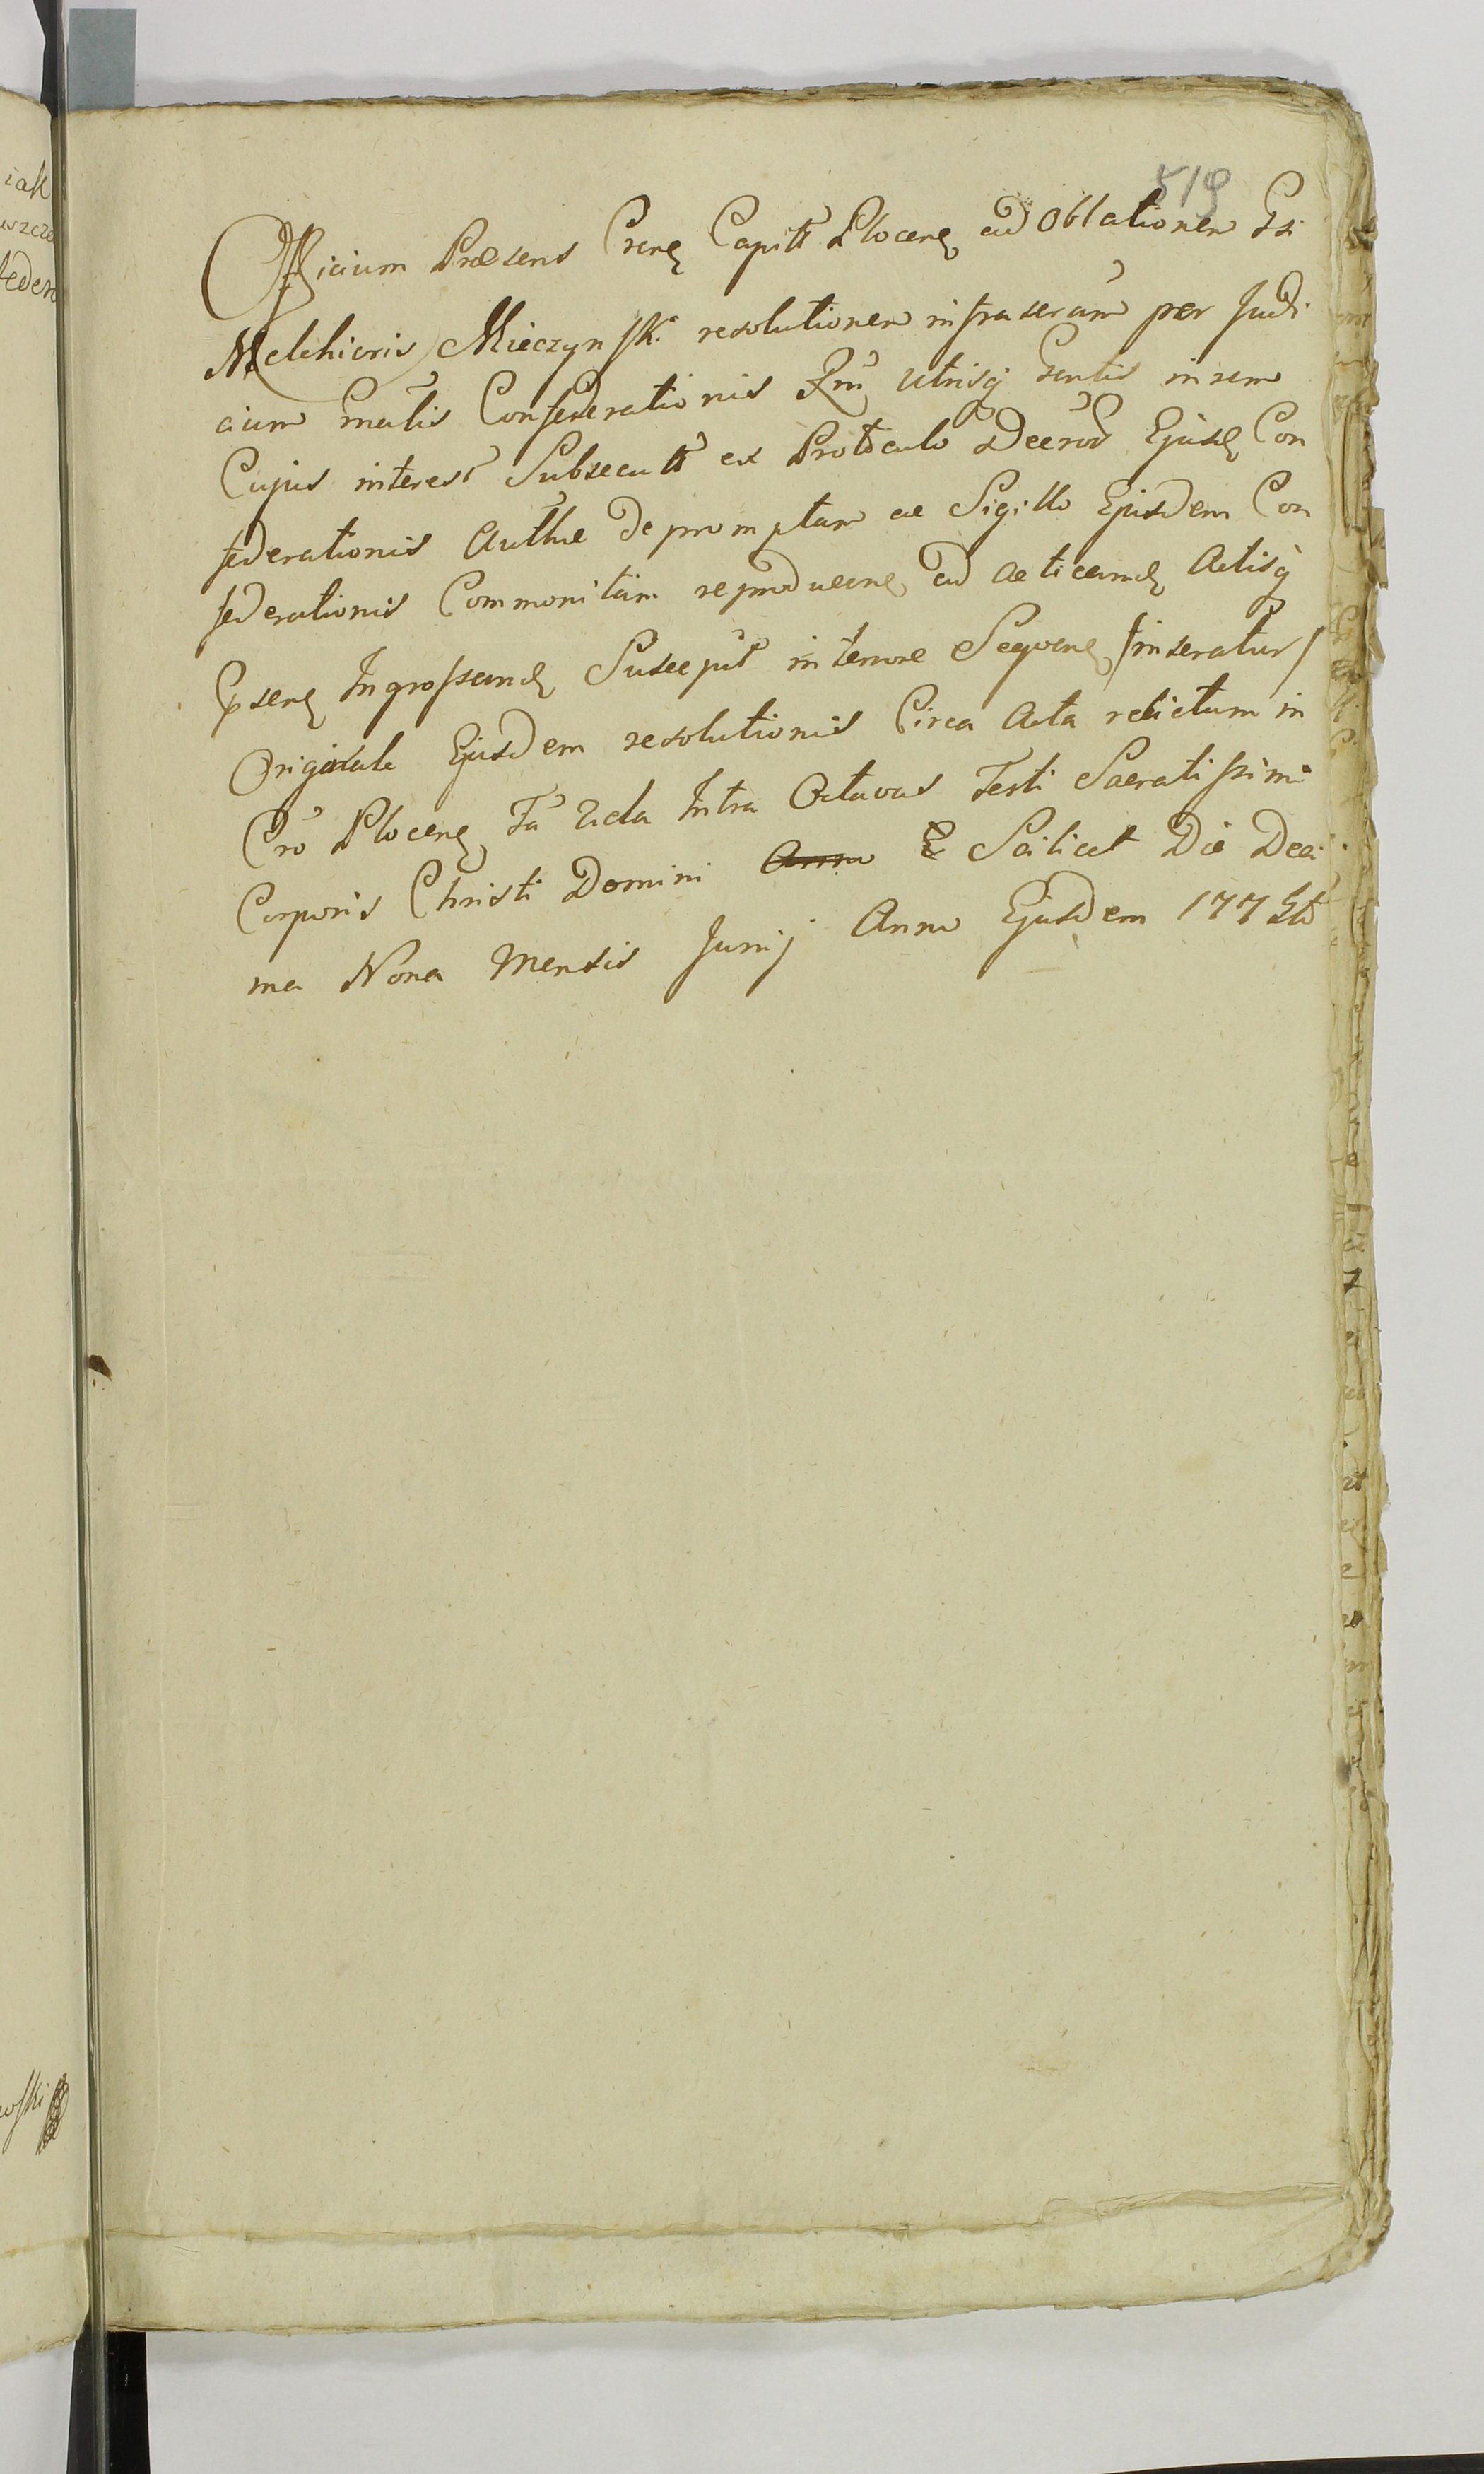 519
Officium Præsens Crene Capitt Plocene ad Oblationem Gsi
Melchioris Mieczynski resolutionem infraseram per Judi
cium Gnalis Confederationis Rm Utriusq Gentis in rem
Cujus interest Subsecutt ex Protoculo Decror Ejusd Con
federationis Authe depromptam ac Sigillo Ejusdem Con
federationis Communitam reproducene ad acticand Actisq
Ingrossand Suscepit in tenore Sequene /inseratur/
Originale Ejusdem resolutionis Circa Acta relictum in
Cro Plocene Fa 2da Intra Octavas Festi Sacratissimi
Corporis Christi Domini Anno E Scilicet Die Deci
ma Nona Mensis Junij Anno Ejusdem 177
iak
wszczo
feder
wski